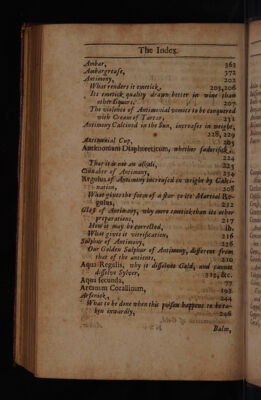 The Index.
Ambar, 362
Ambargrease, 372
Antimony, 202
What renders it emetick, 203, 206
Its emetick quality drawn better in wine than
other liquors, 207
The violence of Antimonial vomits to be conquered
with Cream of Tartar, 231
Antimony Calcined in the Sun, increases in weight,
228, 229
Antimonial Cup, 203
Antimonium Diaphoreticum, whether sudorifick,
224
That it is not an alkali, 225
Cinnaber of Antimony, 234
Regulus of Antimony increased in weight by Calci-
nation, 208
What gives the form of a star to its Martial Re-
gulus, 212
Glass of Antimony, why more emetick than its other
preparations, 217
How it may be corrected, Ib.
What gives it vitrification, 216
Sulphur of Antimony, 226
Our Golden Sulphur of Antimony, different from
that of the antients, 210
Aqua Regalis, why it dissolves Gold, and cannot
dissolve Sylver, &c.
Aqua secunda, 77
Arcanum Corallinum, 192
Arsenick, 244
What to be done when this poison happens to be ta-
ken inwardly, 246
Balm,